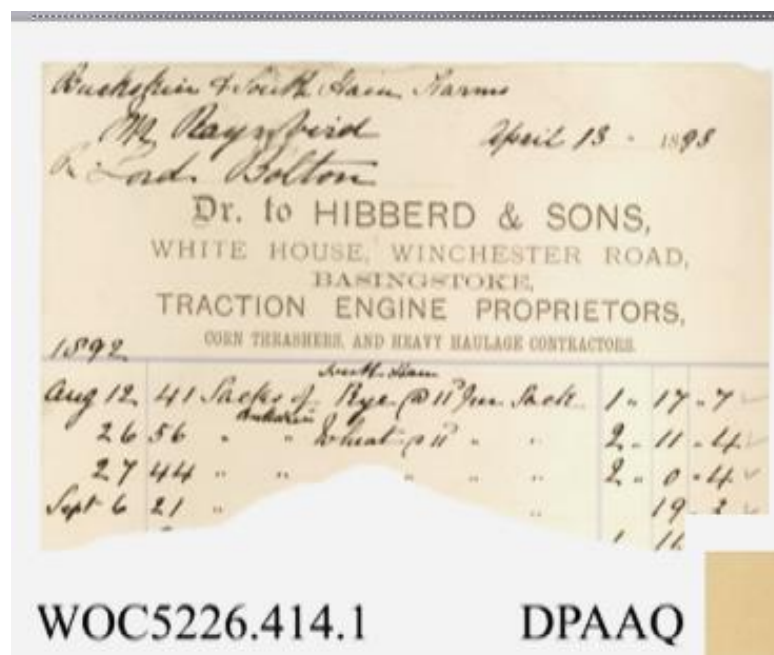 Buckskin & South Ham Farms
Mr Raynbird
April 13 - 1893
Lord Bolton
Dr. to HIBBERD & SONS,
WHITE HOUSE, WINCHESTER ROAD,
BASINGSTOKE,
TRACTION ENGINE PROPRIETORS,
CORN THRASHERS, AND HEAVY HAULAGE CONTRACTORS.
1892
South Ham
Aug 12 41 Sacks of Rye @ 11d per Sack 1 " 17 " 7
Buckskin
26 56 " " Wheat @ 11d " " 2 " 11 " 4
27 44 " " " " " " 2 " 0 " 4
Sept 6 21 " " 19 " 3
1 11
WOC5226.414.1 DPAAQ